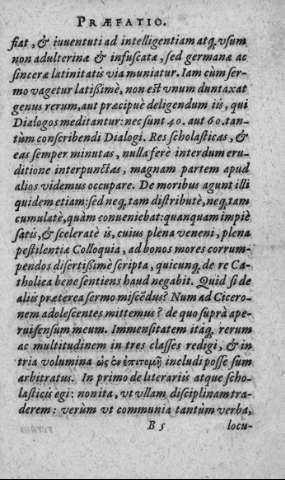 PRÆFATIO.
fiat, & iuuentuti ad intelligentiam atq; vsum
non adulterinæ & infuscatæ, sed germanæ ac
sinceræ latinitatis via muniatur. Iam cùm ser-
mo vagetur latißimè, non est vnum duntaxat
genus rerum, aut præcipuè deligendum iis, qui
Dialogos meditantur: nec sunt 40. aut 60. tan-
tùm conscribendi Dialogi. Res scholasticas, &
eas semper minutas, nulla ferè interdum eru-
ditione interpunctas, magnam partem apud
alios videmus occupare. De moribus agunt illi
quidem etiam: sed neq; tam distributè, neq; tam
cumulatè, quàm conueniebat: quanquam impiè
satis, & sceleratè is, cuius plena veneni, plena
pestilentiæ Colloquia, ad bonos mores corrum-
pendos disertißimè scripta, quicunq; de re Ca-
tholica bene sentiens haud negabit. Quid si de
aliis præterea sermo miscēdus? Num ad Cicero-
nem adolescentes mittemus? de quo suprà ape-
rui sensum meum. Immensitatem itaq; rerum
ac multitudinem in tres classes redigi, & in
tria volumina ὡς ἐν ἐπιτομῇ includi posse sum
arbitratus. In primo de literariis atque scho-
lasticis egi: non ita, vt vllam disciplinam tra-
derem: verùm vt communia tantùm verba,
B 5 locu-